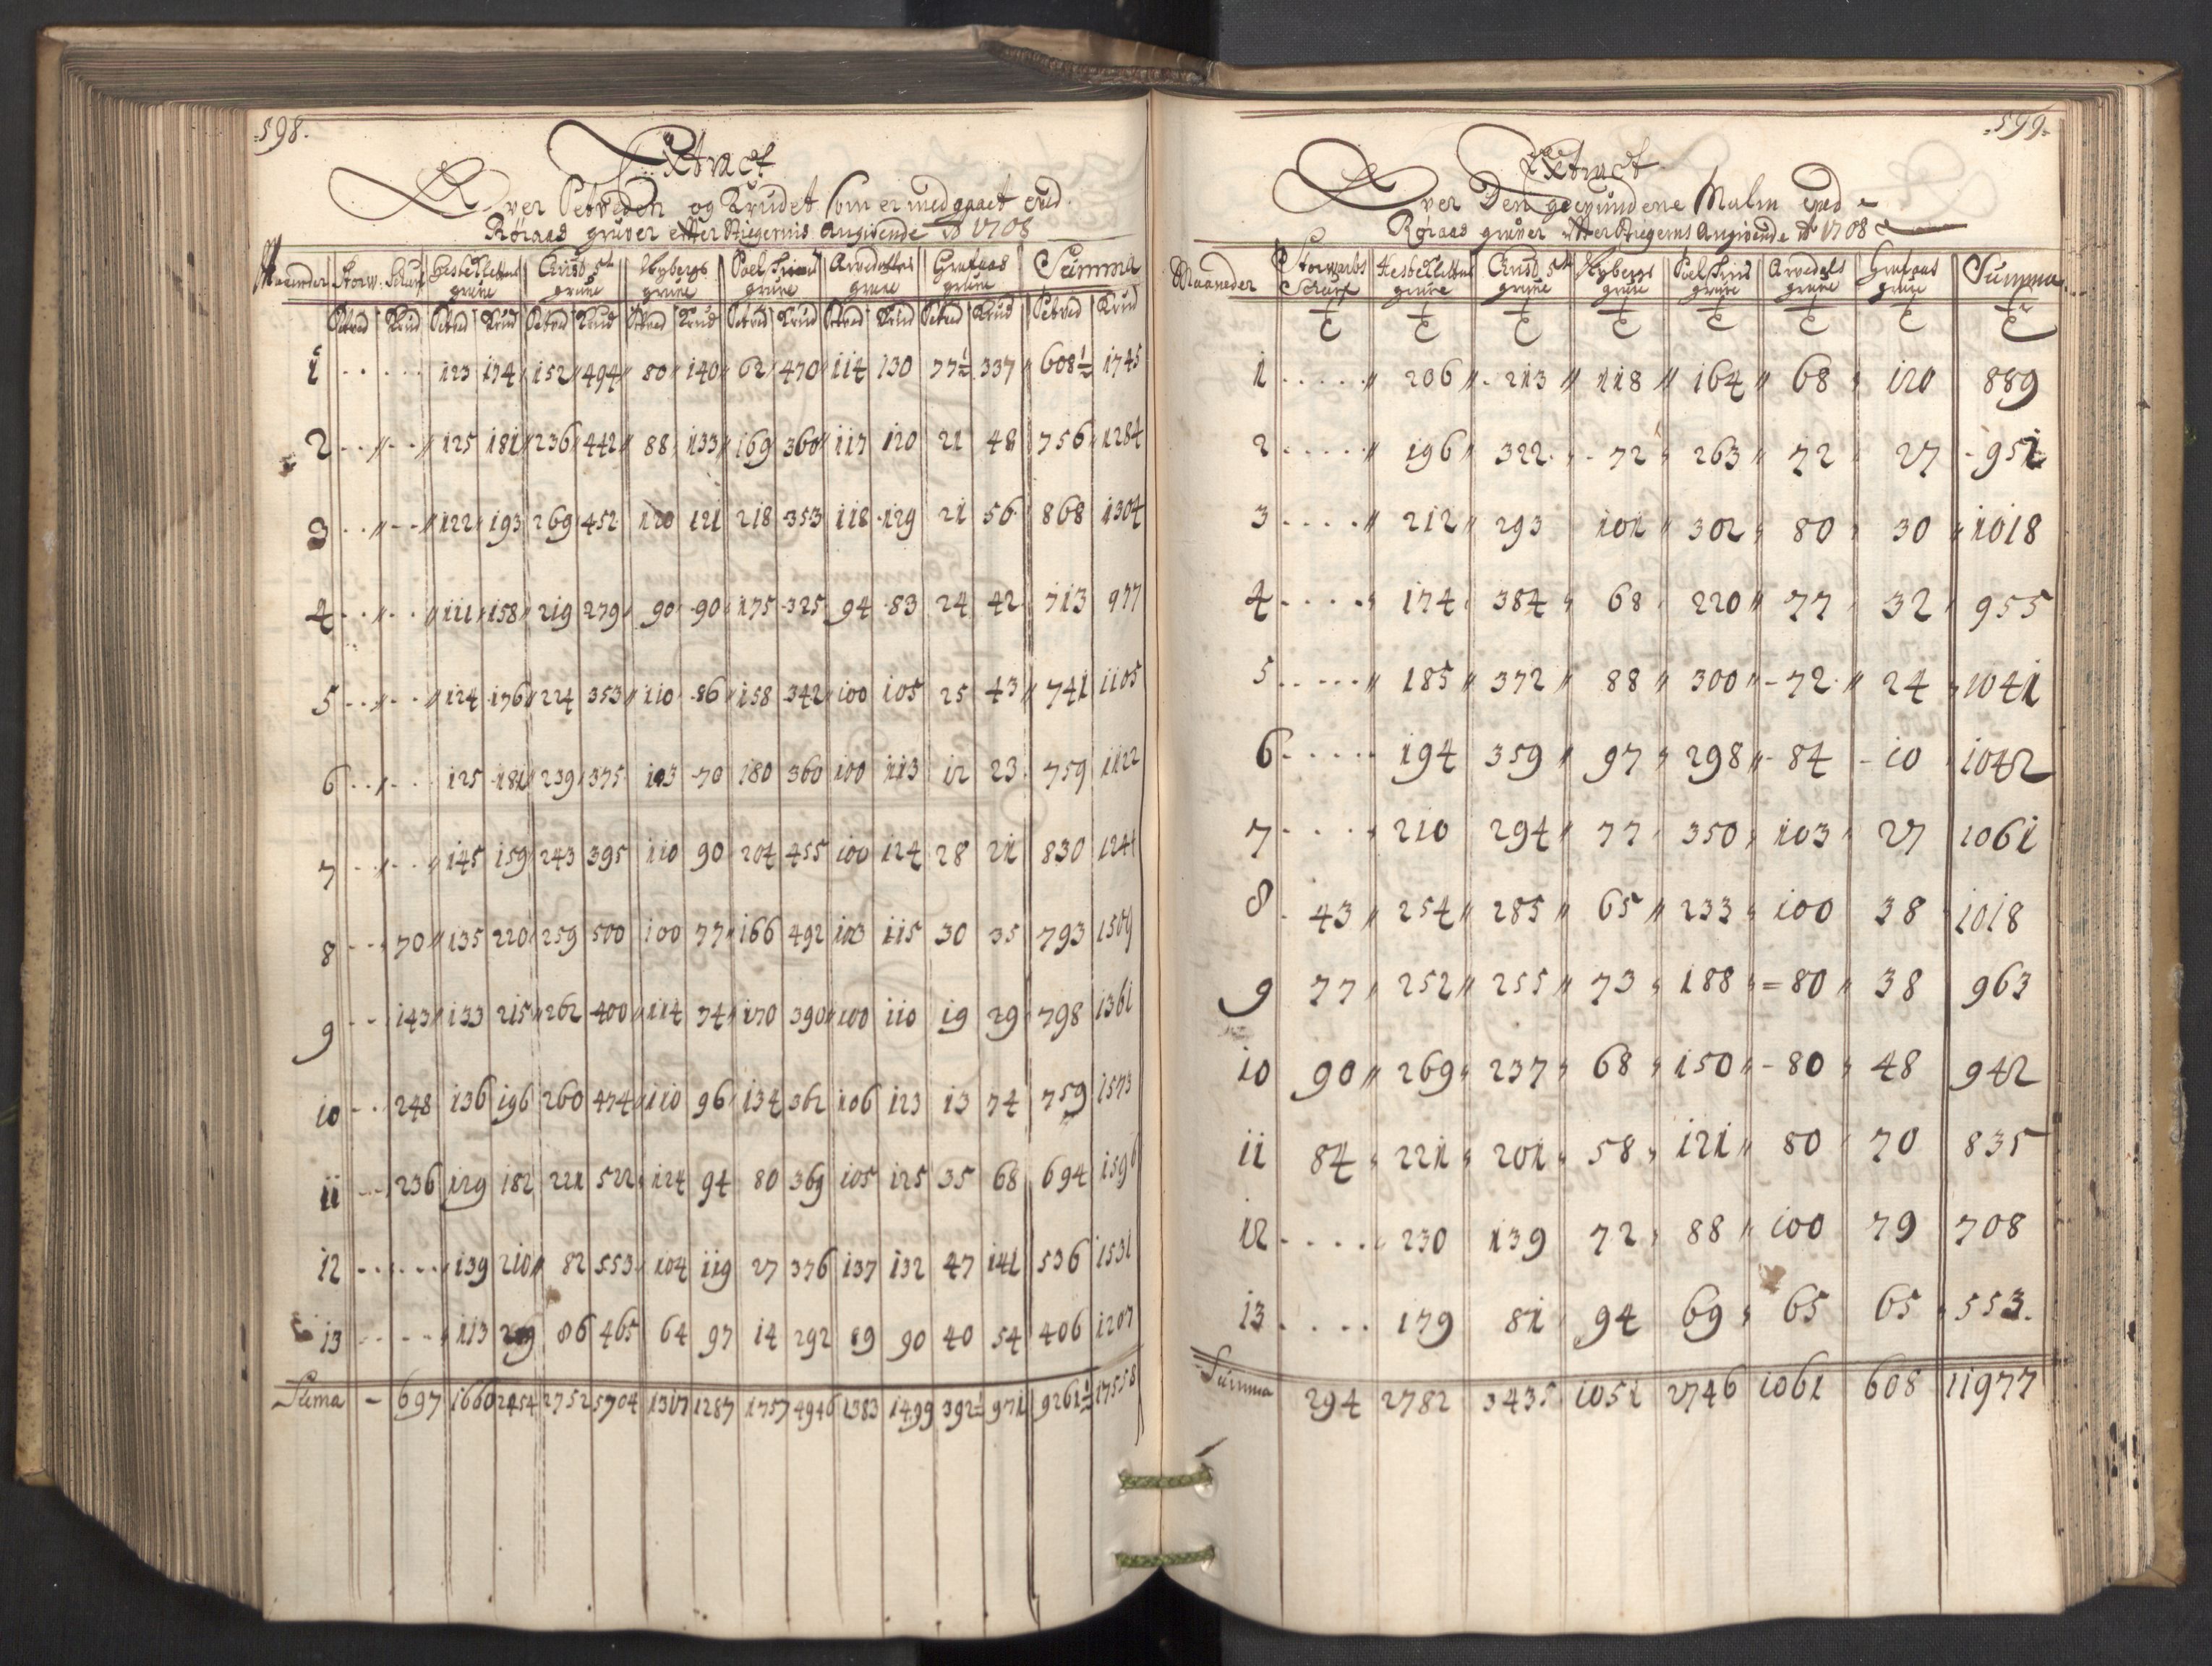 598.
Extract
Over Setveden og Krudet som er medgaaet ved
Røraas gruver efter Stiegernis Angivende Ao 1708
Maaneder Storw: Schurf Hestekletten grue Christ: 5te grue Nybergs grue Poel grue Arvedals grue Graf aas grue Summa
Setved Krud Setved Krud Setved Krud Setved Krud Setved Krud Setved Krud Setved Krud Setved Krud
1 123 174 152 494 80 140 62 470 114 130 77½ 337 608½ 1745
2 125 181 236 442 88 133 169 360 117 120 21 48 756 1284
3 122 193 269 452 120 121 218 353 118 129 21 56 868 1304
4 111 158 219 279 90 90 175 325 94 83 24 42 713 977
5 124 176 224 353 110 86 158 342 100 105 25 43 741 1105
6 125 181 239 375 103 70 180 360 100 113 12 23 759 1122
7 145 159 243 395 110 90 204 455 100 124 28 21 830 1244
8 70 135 220 259 500 100 77 166 492 103 115 30 35 793 1509
9 143 133 215 262 400 114 74 170 390 100 110 19 29 798 1361
10 248 136 196 260 474 110 96 134 362 106 123 13 74 759 1573
11 236 129 182 221 522 124 94 80 369 105 125 35 68 694 1596
12 139 210 82 553 104 119 27 376 137 132 47 141 536 1531
13 113 209 86 465 64 97 14 292 89 90 40 54 406 1207
Suma 697 1660 2454 2752 5704 1317 1287 1757 4946 1383 1499 392½ 971 9261½ 17558
599.
Extract
Over Den gevundene Malm ved
Røraas gruver efter Stiegerns Angivende Ao 1708
Maaneder Storwarts Schurf Hestekletten grue Christ: 5te grue Nybergs grue Poel grue Arvedals grue Grafaas grue Summa
1 206 213 118 164 68 120 889
2 196 322 72 263 72 27 951
3 212 293 101 302 80 30 1018
4 174 384 68 220 77 32 955
5 185 372 88 300 72 24 1041
6 194 359 97 298 84 10 1042
7 210 294 77 350 103 27 1061
8 43 254 285 65 233 100 38 1018
9 77 252 255 73 188 80 38 963
10 90 269 237 68 150 80 48 942
11 84 221 201 58 121 80 70 835
12 230 139 72 88 100 79 708
13 179 81 94 69 65 65 553.
Summa 294 2782 3435 1051 2746 1061 608 11977